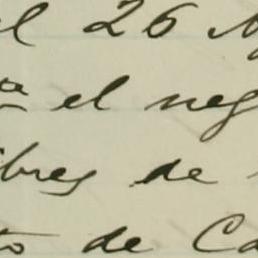 el 26
el neg
ibres de
to de Ca